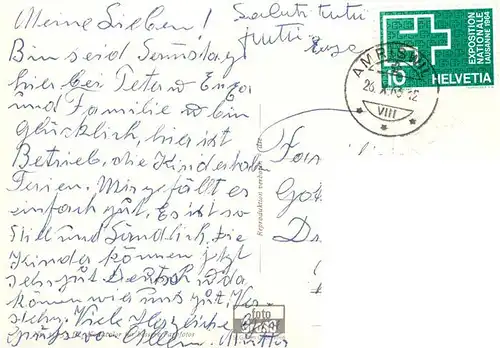 Meine Lieben!
Saluti tutti
tutti
Bin seid Samstag
hier bei Peter
und Familie u bin
glücklich, hier ist
Betrieb, die Kinder haben
Ferien. Mir gefällt es
einfach gut. Es ist so
still und ländlich. Die
Kinder können jetzt
sehr gut Deutsch u da
können wir uns gut ver-
stehn. Viele herzliche
Grüsse von Mutter
Reproduktion verboten
foto
AMRISWIL
26.X.63-12
VIII
10
HELVETIA
EXPOSITION
NATIONALE
LAUSANNE 1964
Fam